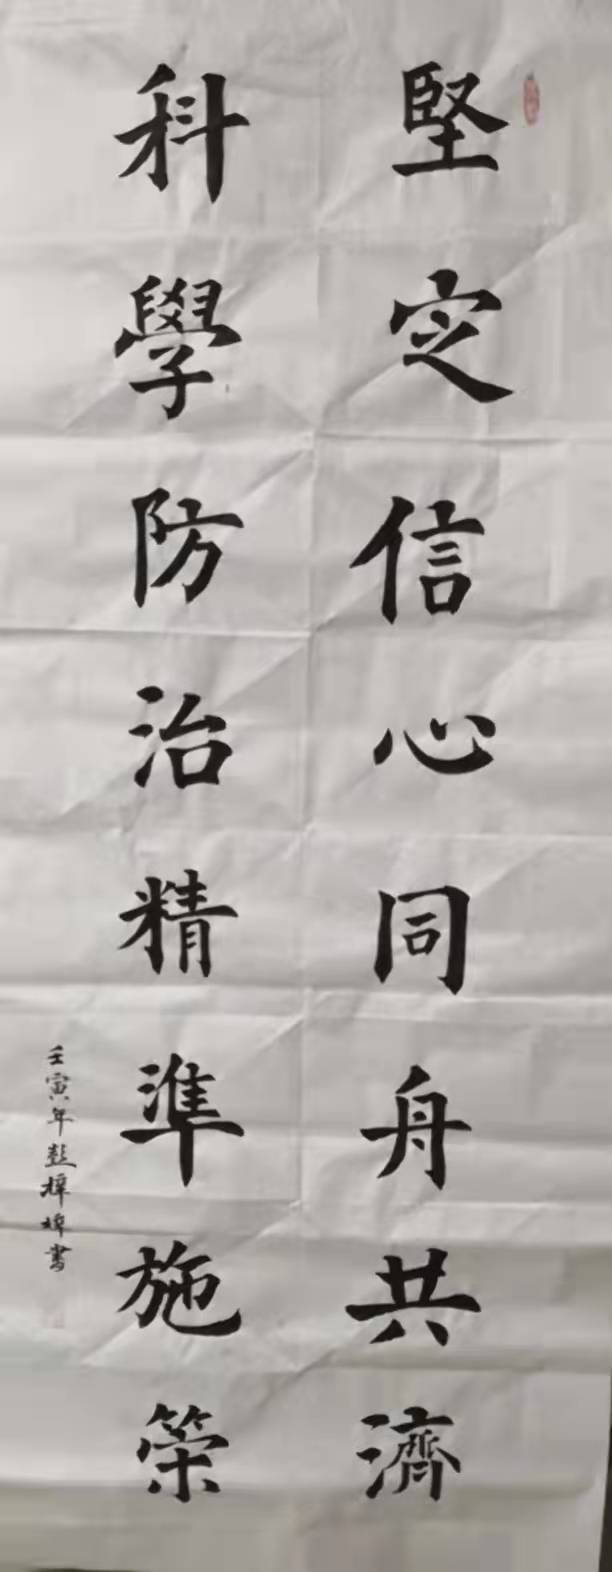 堅定信心同舟共濟
科學防治精準施策
壬寅年
書